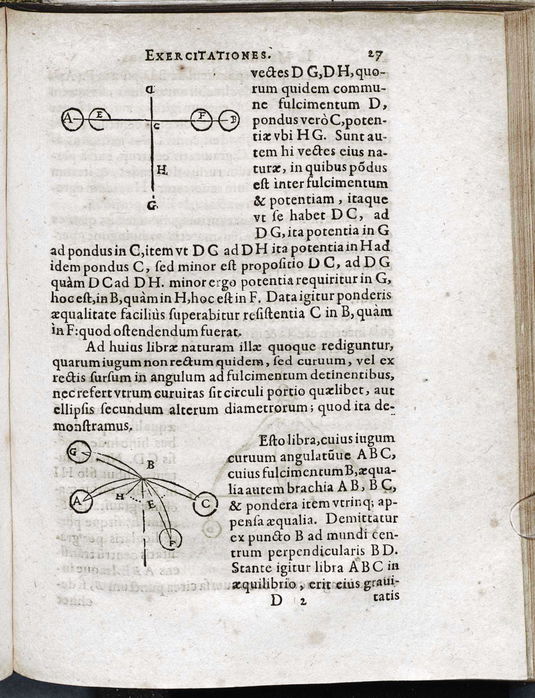 EXERCITATIONES. 27
vectes D G, D H, quo-
rum quidem commu-
ne fulcimentum D,
pondus verò C, poten-
tiæ vbi H G. Sunt au-
tem hi vectes eius na-
turæ, in quibus põdus
est inter fulcimentum
& potentiam, itaque
vt se habet D C, ad
D G, ita potentia in G
ad pondus in C, item vt D G ad D H ita potentia in H ad
idem pondus C, sed minor est propositio D C, ad D G
quàm D C ad D H. minor ergo potentia requiritur in G,
hoc est, in B, quàm in H, hoc est in F. Data igitur ponderis
æqualitate faciliùs superabitur resistentia C in B, quàm
in F: quod ostendendum fuerat.
Ad huius libræ naturam illæ quoque rediguntur,
quarum iugum non rectum quidem, sed curuum, vel ex
rectis sursum in angulum ad fulcimentum detinentibus,
nec refert vtrum curuitas sit circuli portio quælibet, aut
ellipsis secundum alterum diametrorum; quod ita de-
monstramus.
Esto libra, cuius iugum
curuum angulatũue A B C,
cuius fulcimentum B, æqua-
lia autem brachia A B, B C,
& pondera item vtrinq; ap-
pensa æqualia. Demittatur
ex puncto B ad mundi cen-
trum perpendicularis B D.
Stante igitur libra A B C in
æquilibrio, erit eius graui-
D 2 tatis
A E C F B
H
G
G
B
A H E C
F